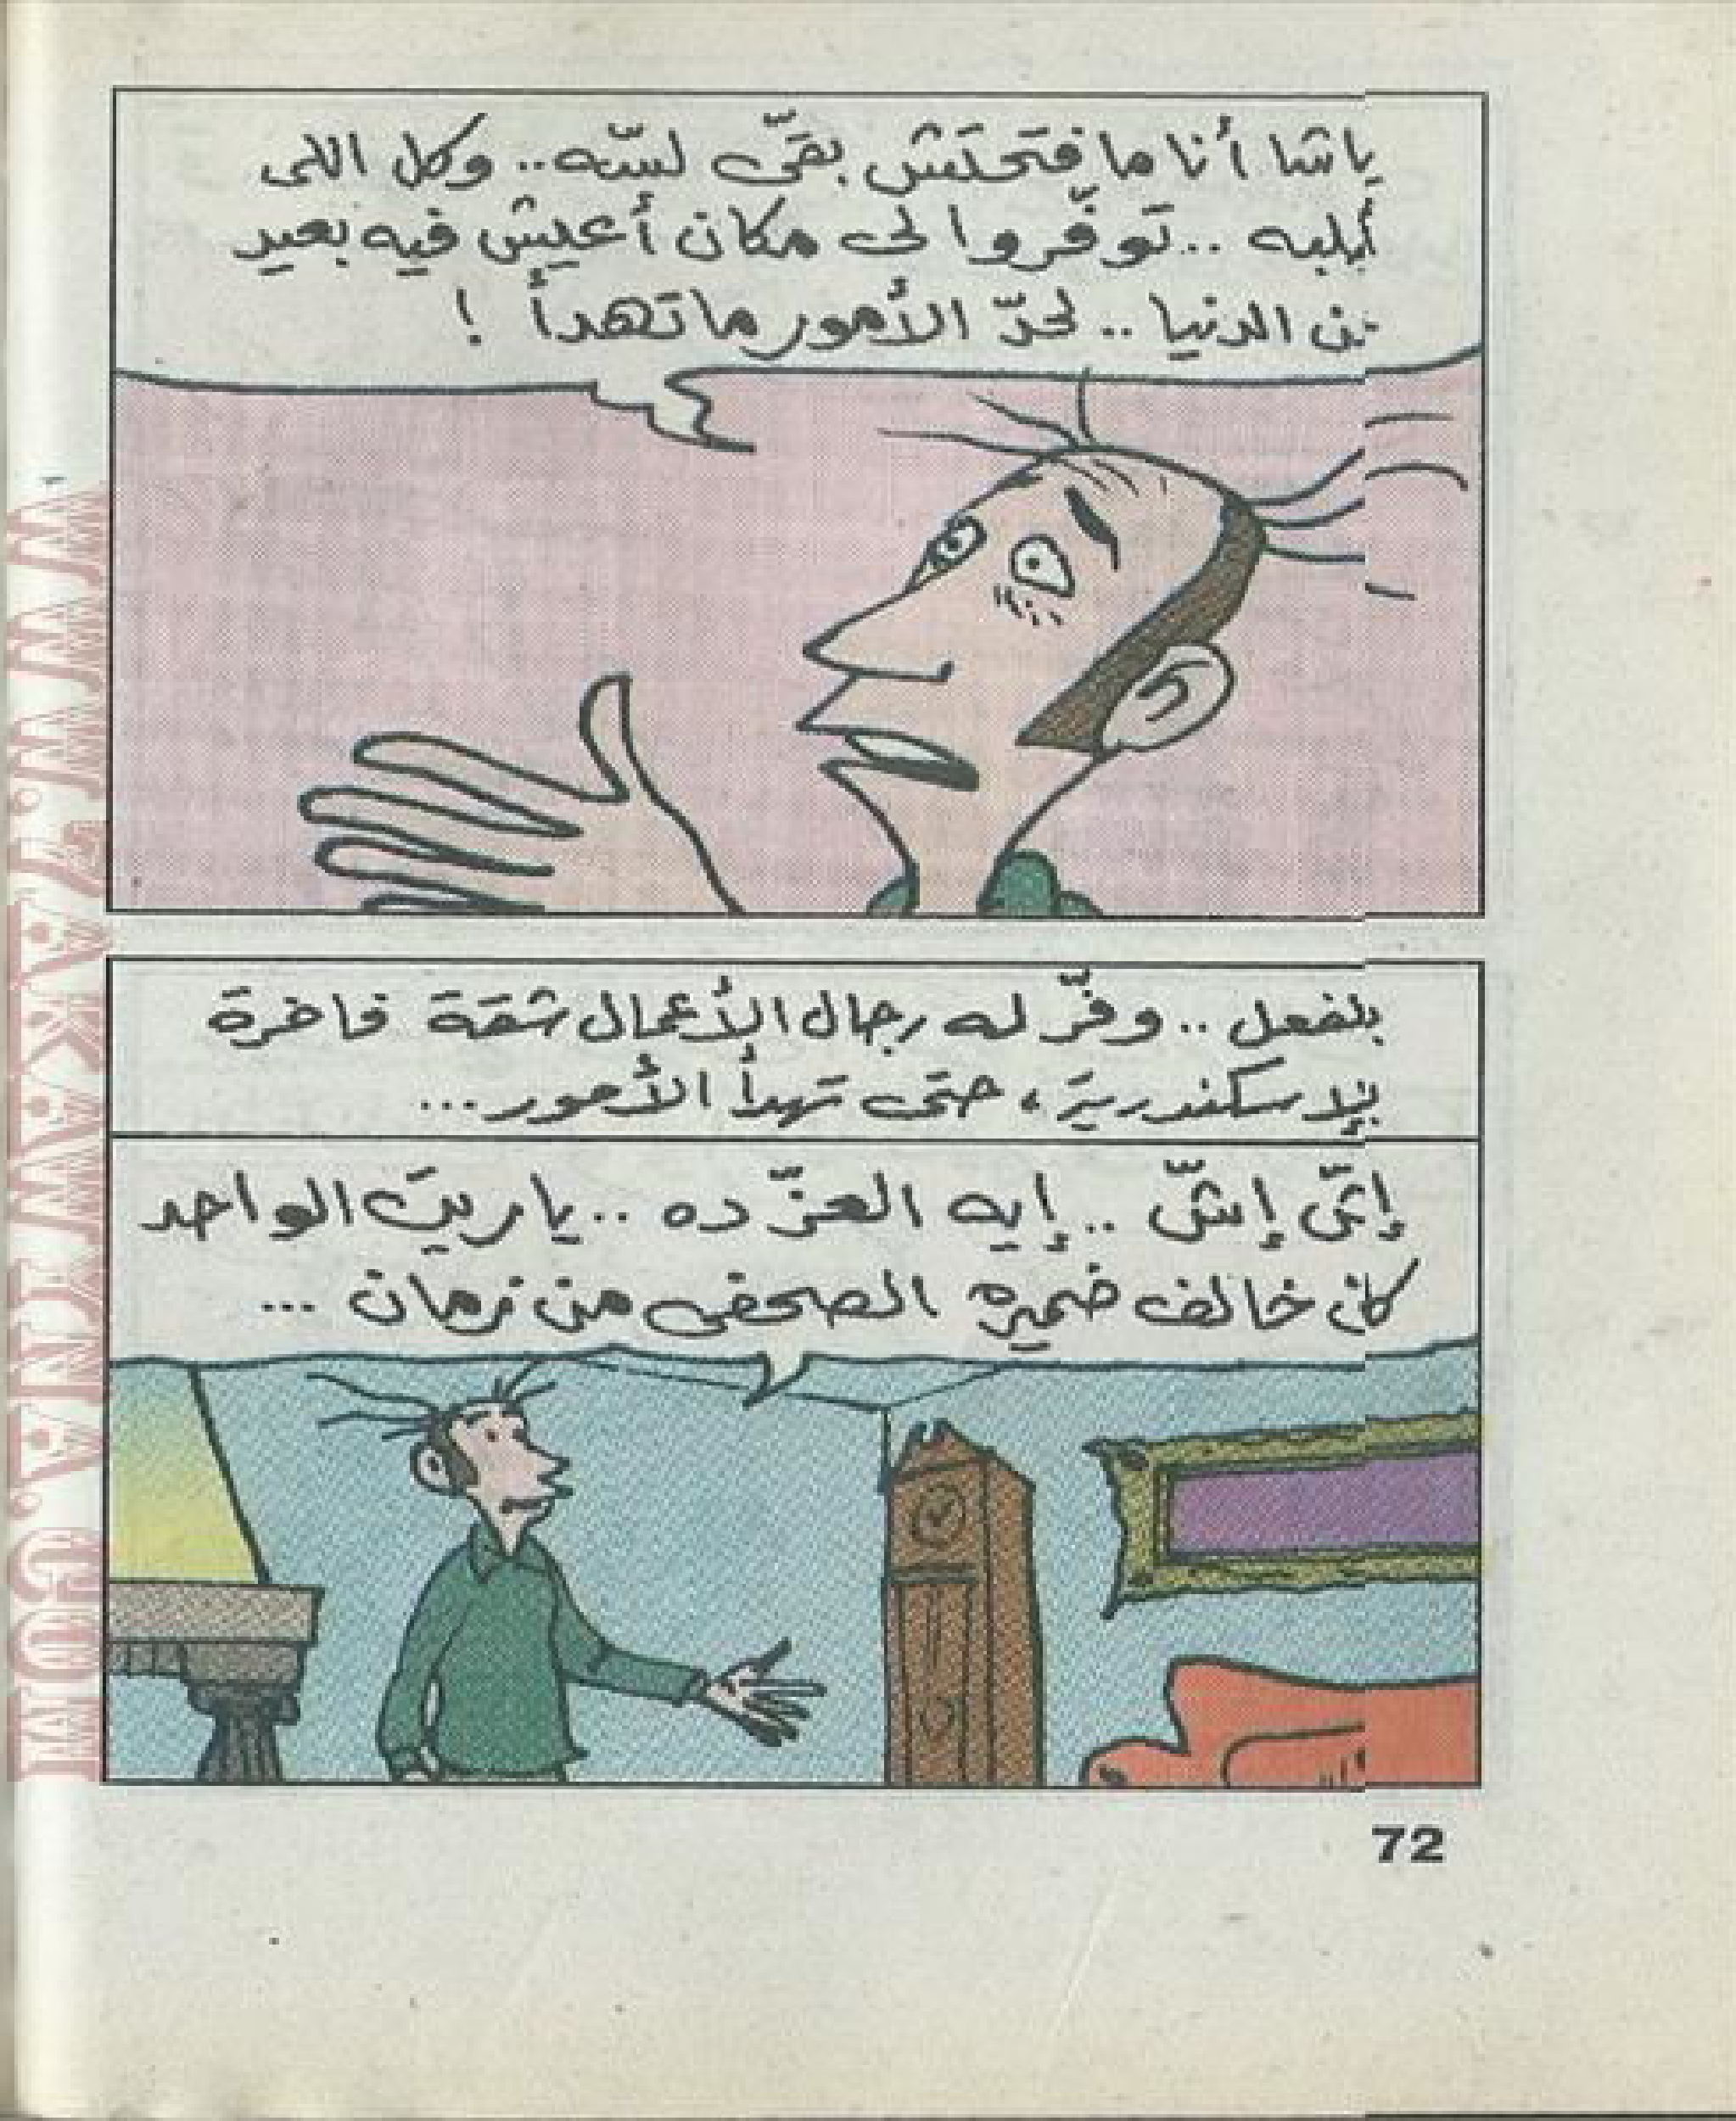 باشا أنا ما فتحتش بقّى لسّه.. وكل اللى
توفّروا لى مكان أعيش فيه بعيد
عن الدنيا .. لحدّ الأمور ما تهدأ !
بالفعل .. وفّر له رجال الأعمال شقة فاخرة
بالإسكندرية ، حتى تهدأ الأمور...
إشّى إشّى .. إيه العزّ ده .. ياريت الواحد
كان خالف ضميره الصحفى من زمان ...
72